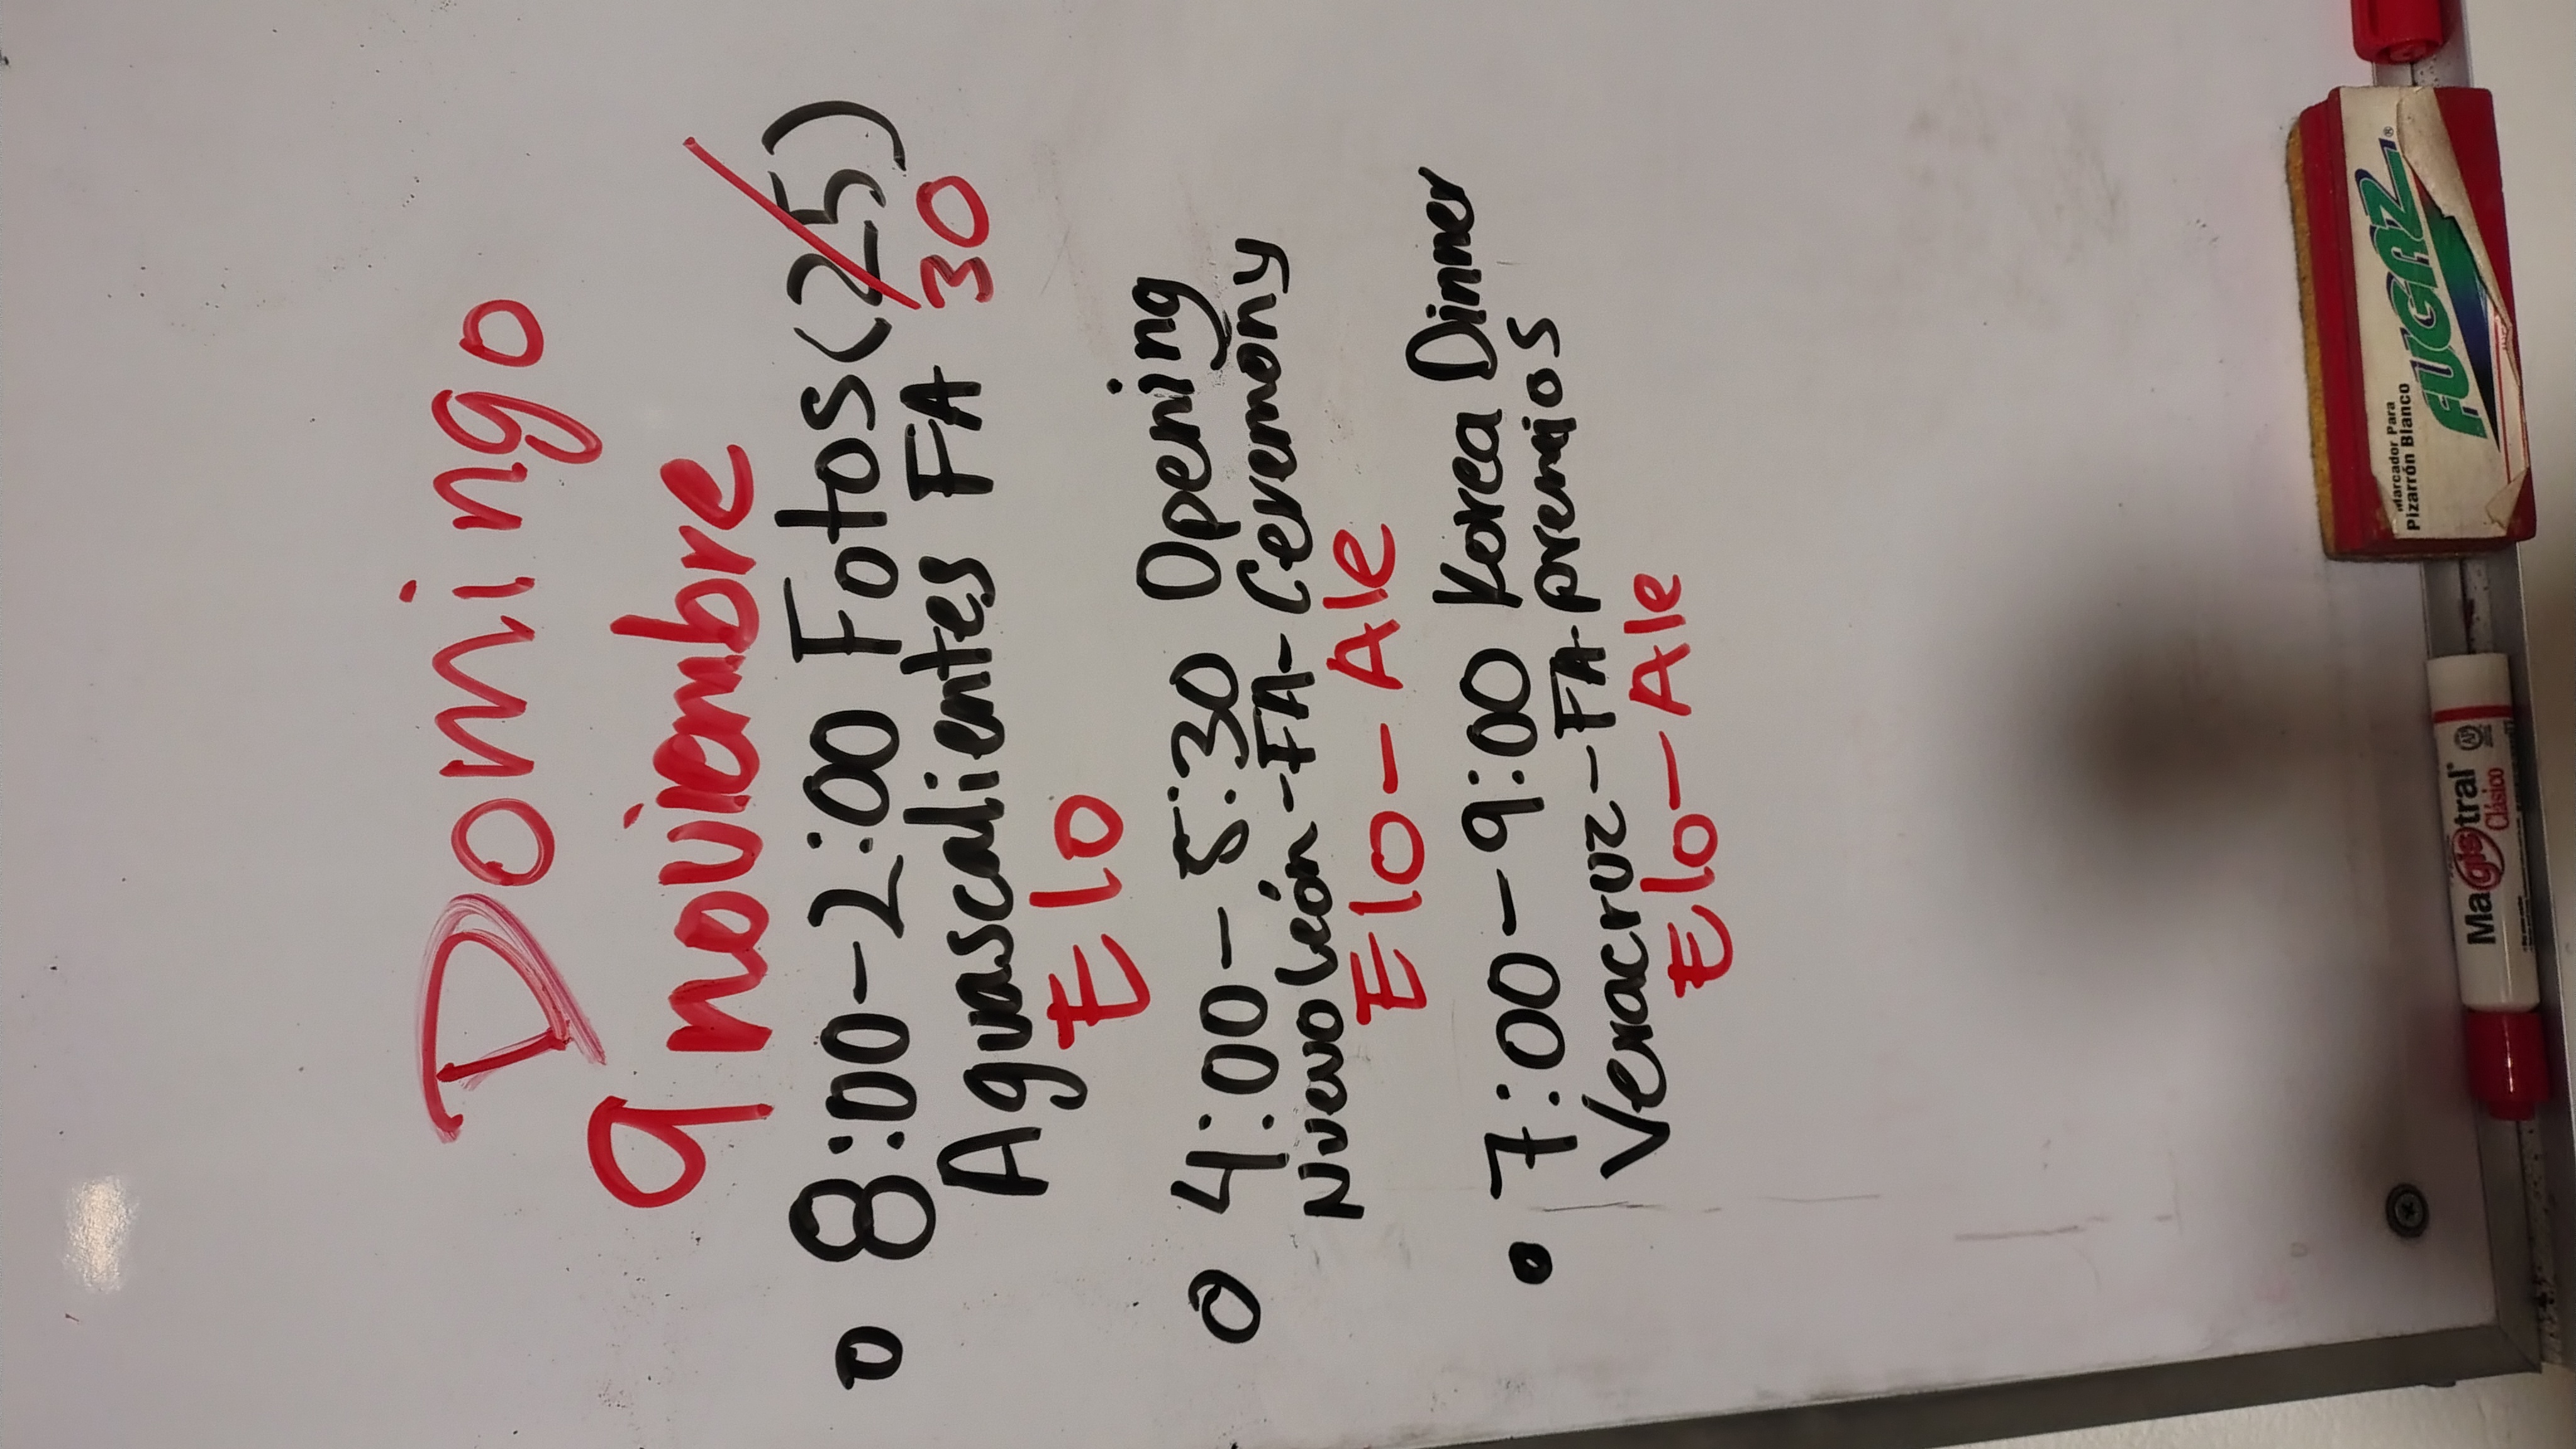 Domingo
9 noviembre
• 8:00-2:00 Fotos (25)
Aguascalientes FA 30
Elo
• 4:00-5:30 Opening
Nuevo León-FA-Ceremony
Elo-Ale
• 7:00-9:00 Korea Dinner
Veracruz-FA-premios
Elo-Ale
Marcador Para
Pizarrón Blanco
FUGAZ®
Magistral®
Clásico
AP